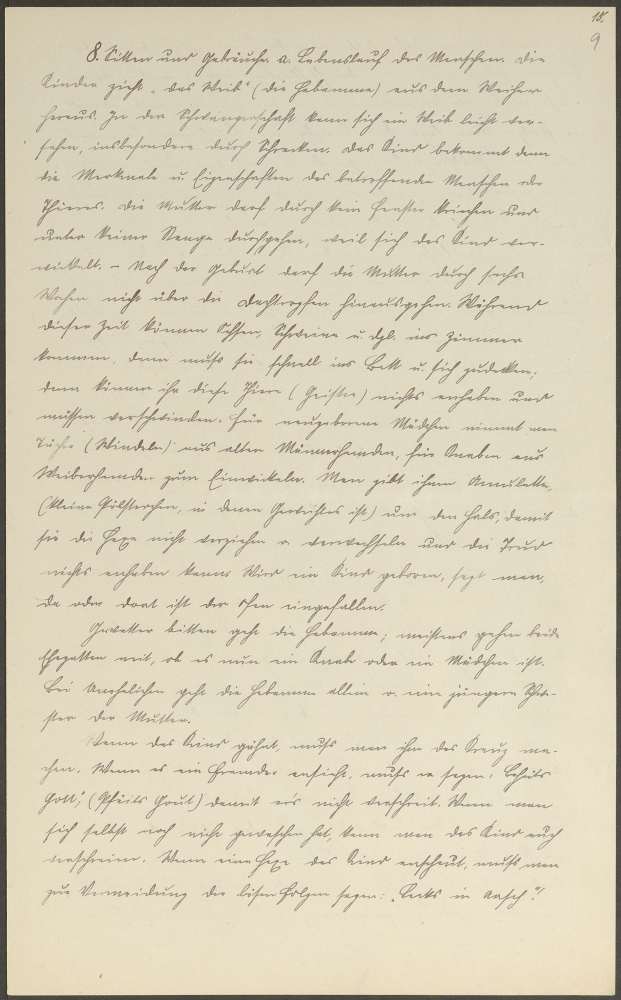 18.
9
8. Sitten und Gebräuche. a. Lebenslauf des Menschen. Die
Kinder zieht „das Weib“ (die Hebamme) aus dem Weiher
heraus. In der Schwangerschaft kann sich ein Weib leicht ver-
sehen, insbesondere durch Schrecken. Das Kind bekommt dann
die Merkmale u. Eigenschaften des betreffenden Menschen oder
Thieres. Die Mutter darf durch kein Fenster kriechen und
unter keiner Stange durchgehen, weil sich das Kind ver-
wickelt. – Nach der Geburt darf die Mutter durch sechs
Wochen nicht über die Dachtropfen hinausgehen. Während
dieser Zeit können Ochsen, Schweine u. dgl. ins Zimmer
kommen, dann muß sie schnell ins Bett u. sich zudecken;
dann können ihr diese Thiere (Geister) nichts anhaben und
müssen verschwinden. Für neugeborene Mädchen nimmt man
Tücher (Windeln) aus alten Männerhemden, für Knaben aus
Weiberhemden zum Einwickeln. Man gibt ihnen Amulette,
(kleine Pölsterchen, in denen Geweihtes ist) um den Hals, damit
sie die Hexe nicht verziehen o. verwechseln und die Trud
nichts anhaben kann. Wird ein Kind geboren, sagt man,
da oder dort ist der Ofen eingefallen.
Gevatter bitten geht die Hebamme; meistens gehen beide
Ehegatten mit, ob es nun ein Knabe oder ein Mädchen ist.
Bei Unehelichen geht die Hebamme allein o. eine jüngere Schwe-
ster der Mutter.
Wenn das Kind gähnt, muß man ihm das Kreuz ma-
chen. Wenn es ein Fremder ansieht, muß er sagen: „Behüts
Gott“, (Pfüits Gout) damit ers nicht verschreit. Wenn man
sich selbst noch nicht gewaschen hat, kann man das Kind auch
verschreien. Wenn eine Hexe das Kind anschaut, muß man
zur Vermeidung der bösen Folgen sagen: „Leckts in Aasch“!